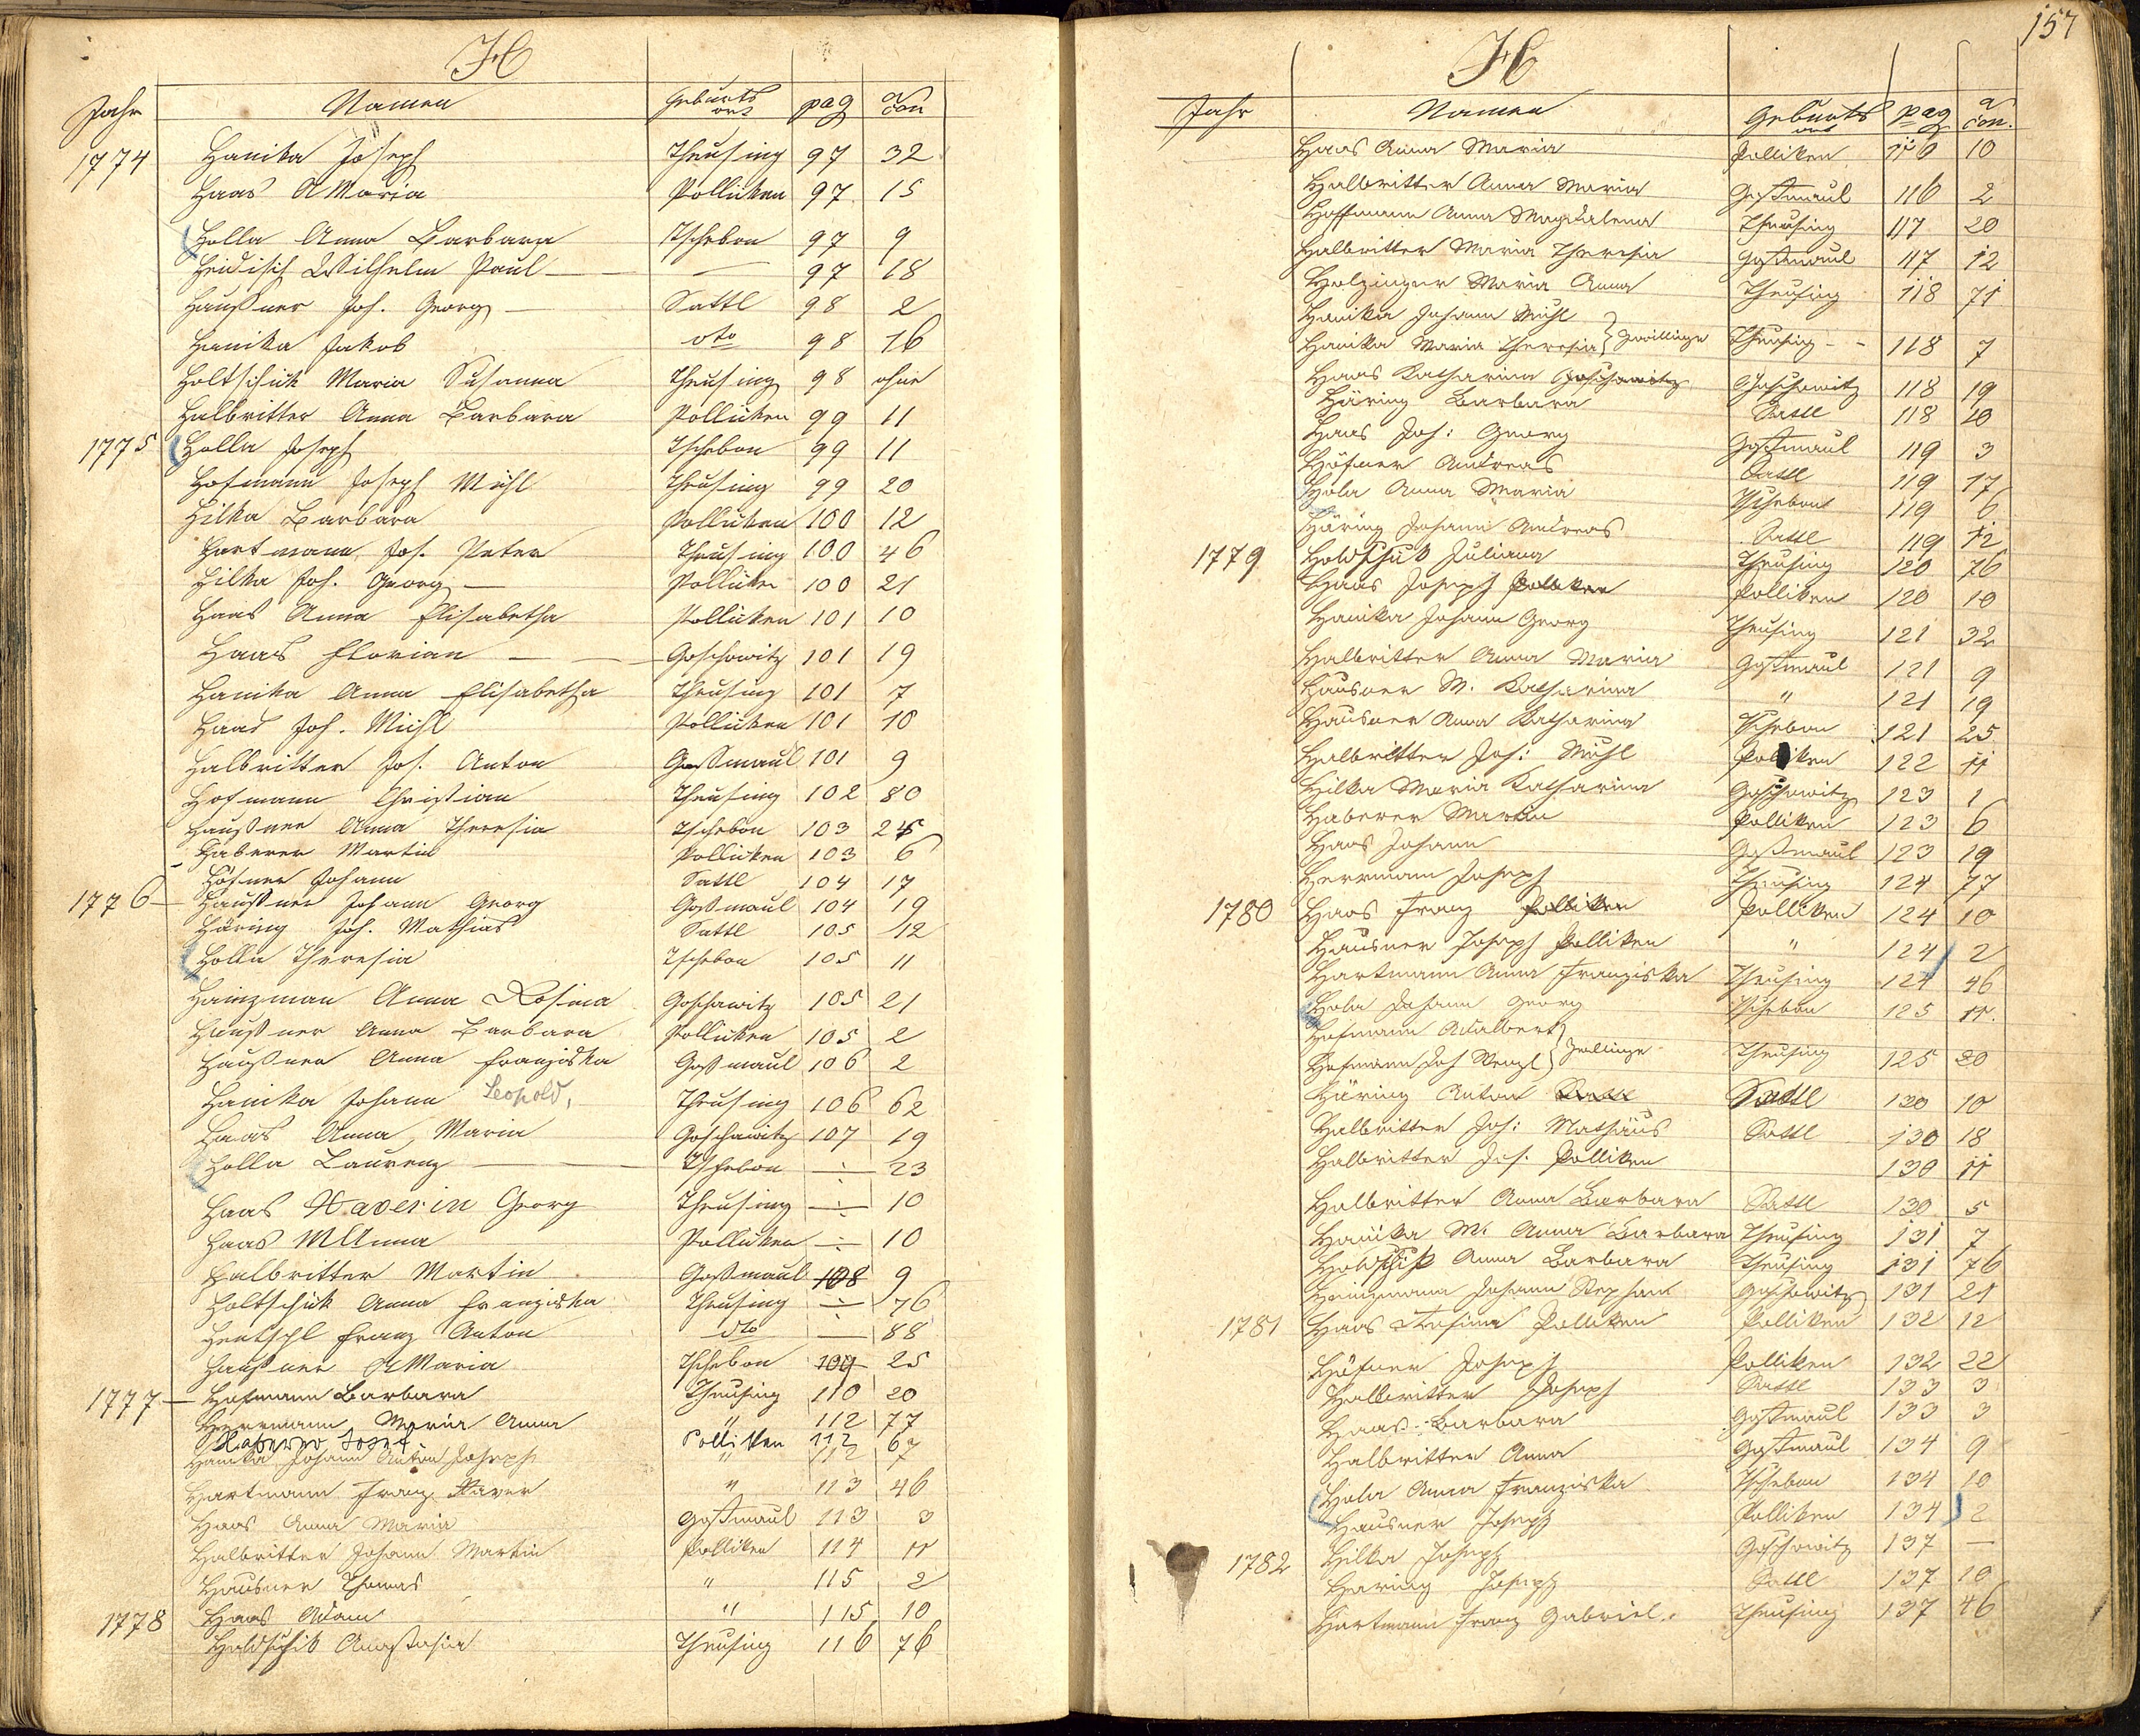 H
Jahr Namen Geburts ort pag Nro con
1774 Hanika Joseph Theusing 97 32
Haas A Maria Pollicken 97 15
Holla Anna Barbara Tschebon 97 9
Heidisch Wilhelm Paul — — 97 18
Haußner Joh. Georg — Sattl 98 2
Hanika Jakob dto 98 76
Holtschick Maria Susanna Theusing 98 ohne
Halbritter Anna Barbara Pollicken 99 11
1775 Holla Joseph Tschebon 99 11
Hofmann Joseph Michl Theusing 99 20
Hilka Barbara Pollicken 100 12
Hartmann Jos. Peter Theusing 100 46
Hilka Joh. Georg — Pollicken 100 21
Haas Anna Elisabetha Pollicken 101 10
Haas Florian — — Goschowitz 101 19
Hanika Anna Elisabetha Theusing 101 7
Haas Joh. Michl Pollicken 101 10
Halbritter Jos. Anton Goßmaul 101 9
Hofmann Christian Theusing 102 80
Haußner Anna Theresia Tschebon 103 25
Haberer Martin Pollicken 103 6
Höfner Johann Sattl 104 17
1776 — Haußner Johann Georg Goßmaul 104 19
Häring Joh. Mathias Sattl 105 12
Holla Theresia Tschebon 105 11
Hainzman Anna Rosina Goschawitz 105 21
Haußner Anna Barbara Pollicken 105 2
Haußner Anna Franziska Goßmaul 106 2
Hanika Johann Leopold, Theusing 106 62
Haas Anna Maria Goschawitz 107 19
Holla Laurenz — Tschebon ÷ 23
Haas Xaverin Georg Theusing ÷ 10
Haas M Anna Pollicken ÷ 10
Halbritter Martin Goßmaul 108 9
Holtschick Anna Franziska Theusing ÷ 76
Hentschl Franz Anton dto — 88
Haußner A Maria Tschebon 109 25
1777 — Hofmann Barbara Theusing 110 20
Herrmann Maria Anna " 112 77
Haberer Josef Polliken 112 6
Hanika Johann Anton Joseph " 112 7
Hartmann Franz Xaver " 113 46
Haas Anna Maria Goßmaul 113 3
Halbritter Johann Martin Polliken 114 11
Hausner Thomas " 115 2
1778 Haas Adam " 115 10
Holdschik Anastasia Theusing 116 76
157
H
Jahr Namen Geburts ort pag Nro con.
Haas Anna Maria Polliken 116 10
Halbritter Anna Maria Goßmaul 116 2
Hoffmann Anna Magdalena Theusing 117 20
Halbritter Maria Theresia Goßmaul 117 12
Holzinger Maria Anna Theusing 118 71
Hanika Johann Michl
Hanika Maria Theresia } Zwillinge Theusing - - 118 7
Haas Katharina Goschowitz Goschowitz 118 19
Häring Barbara Sattl 118 10
Haas Joh: Georg Goßmaul 119 3
Höfner Andreas Sattl 119 17
Hola Anna Maria Tschebon 119 6
Häring Johann Andreas Sattl 119 12
1779 Holdschuk Juliana Theusing 120 76
Haas Joseph Polliken Polliken 120 10
Hanika Johann Georg Theusing 121 32
Halbritter Anna Maria Goßmaul 121 9
Hausner M. Katharina " 121 19
Hausner Anna Katharina Tschebon 121 25
Halbritter Joh: Michl Polliken 122 11
Hilka Maria Katharina Goschowitz 123 1
Haberer Martin Polliken 123 6
Haas Johann Goßmaul 123 19
Herrmann Joseph Theusing 124 77
1780 Haas Franz Polliken Polliken 124 10
Hausner Joseph Polliken " 124 2
Hartmann Anna Franziska Theusing 124 46
Hola Johann Georg Tschebon 125 11.
Hofmann Adalbert
Hofmann Joh Wenzl } Zwillinge Theusing 125 20
Häring Anton Sattl Sattl 130 10
Halbritter Joh: Mathäus Sattl 130 18
Halbritter Jos. Polliken 130 11
Halbritter Anna Barbara Sattl 130 5
Hanika M. Anna Barbara Theusing 131 7
Holdschik Anna Barbara Theusing 131 76
Heinzmann Johann Stephan Goschowitz 131 21
1781 Haas Rosina Polliken Polliken 132 12
Höfner Joseph Polliken 132 22
Halbritter Joseph Sattl 133 3
Haas Barbara Goßmaul 133 3
Halbritter Anna Goßmaul 134 9
Hola Anna Franziska Tschebon 134 10
Hausner Joseph Polliken 134 2
1782 Hilka Joseph Goschowitz 137 —
Hering Joseph Sattl 137 10
Hartmann Franz Gabriel. Theusing 137 46